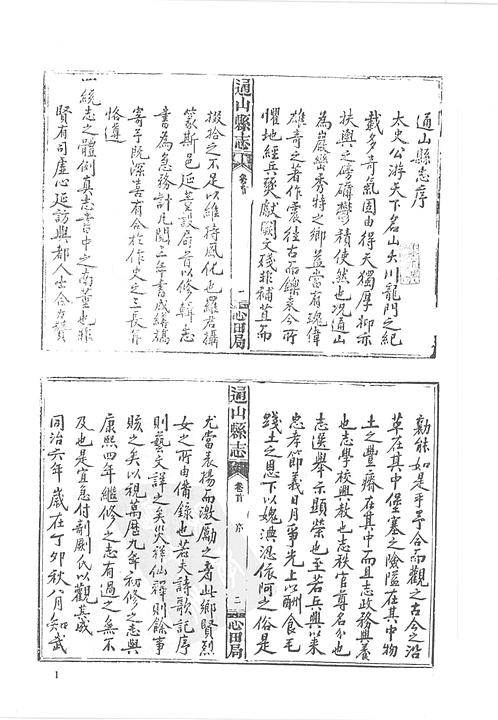 通山縣志序
太史公游天下名山大川龍門之紀
載多奇氣固由得天獨厚抑亦
扶輿之磅礴鬱積使然也况通山
為巖巒秀特之鄉益當有瑰偉
雄奇之著作震往古而鑠來今所
懼地經兵燹獻闕文殘非補苴而
通山縣志 卷首 一 心田局
掇拾之不足以維持風化也羅君攝
篆斯邑延耆設局首以修輯志
書為急務計凡閱三年書成繕稿
寄予既深喜有合於作史之三長而
恪遵
一統志之體例真志書中之南董也非
賢有司虛心延訪與都人士合力贊
勷能如是乎予合而觀之古今之沿
革在其中堡塞之險隘在其中物
土之豐瘠在其中而且志政務興養
也志學校興教也志秩官尊名分也
志選舉示顯榮也至若兵興以來
忠孝節義日月爭光上以酬食毛
踐土之恩下以媿淟涊依阿之俗是
通山縣志 卷首 序 二 心田局
尤當表揚而激勵之者此鄉賢烈
女之所由備錄也若夫詩歌記序
則藝文詳之矣災祥仙禪則餘事
賅之矣以視萬曆九年初修之志與
康熙四年繼修之志有過之無不
及也是宜急付剞劂氏以觀其成
同治六年歲在丁卯秋八月知武
1